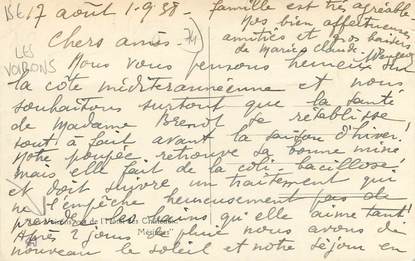 17 août 1-9-38-
Chers amis-
74
LES
VOIRONS
Nous vous pensons heureux sur
la côte méditerannéenne et nous
souhaitons surtout que la santé
de Madame se rétablisse
tout à fait avant la saison d'hiver!
Notre poupée retrouve sa bonne mine
mais elle fait de la coli-bacillose!
et doit suivre un traitement qui
ne l'empêche heureusement pas de
prendre les bains qu'elle aime tant!
Après 2 jours de pluie nous avons de
nouveau le soleil et notre séjour en
famille est très agréable
Nos bien affectueuses
amitiés et gros baisers
de Marie Claude.